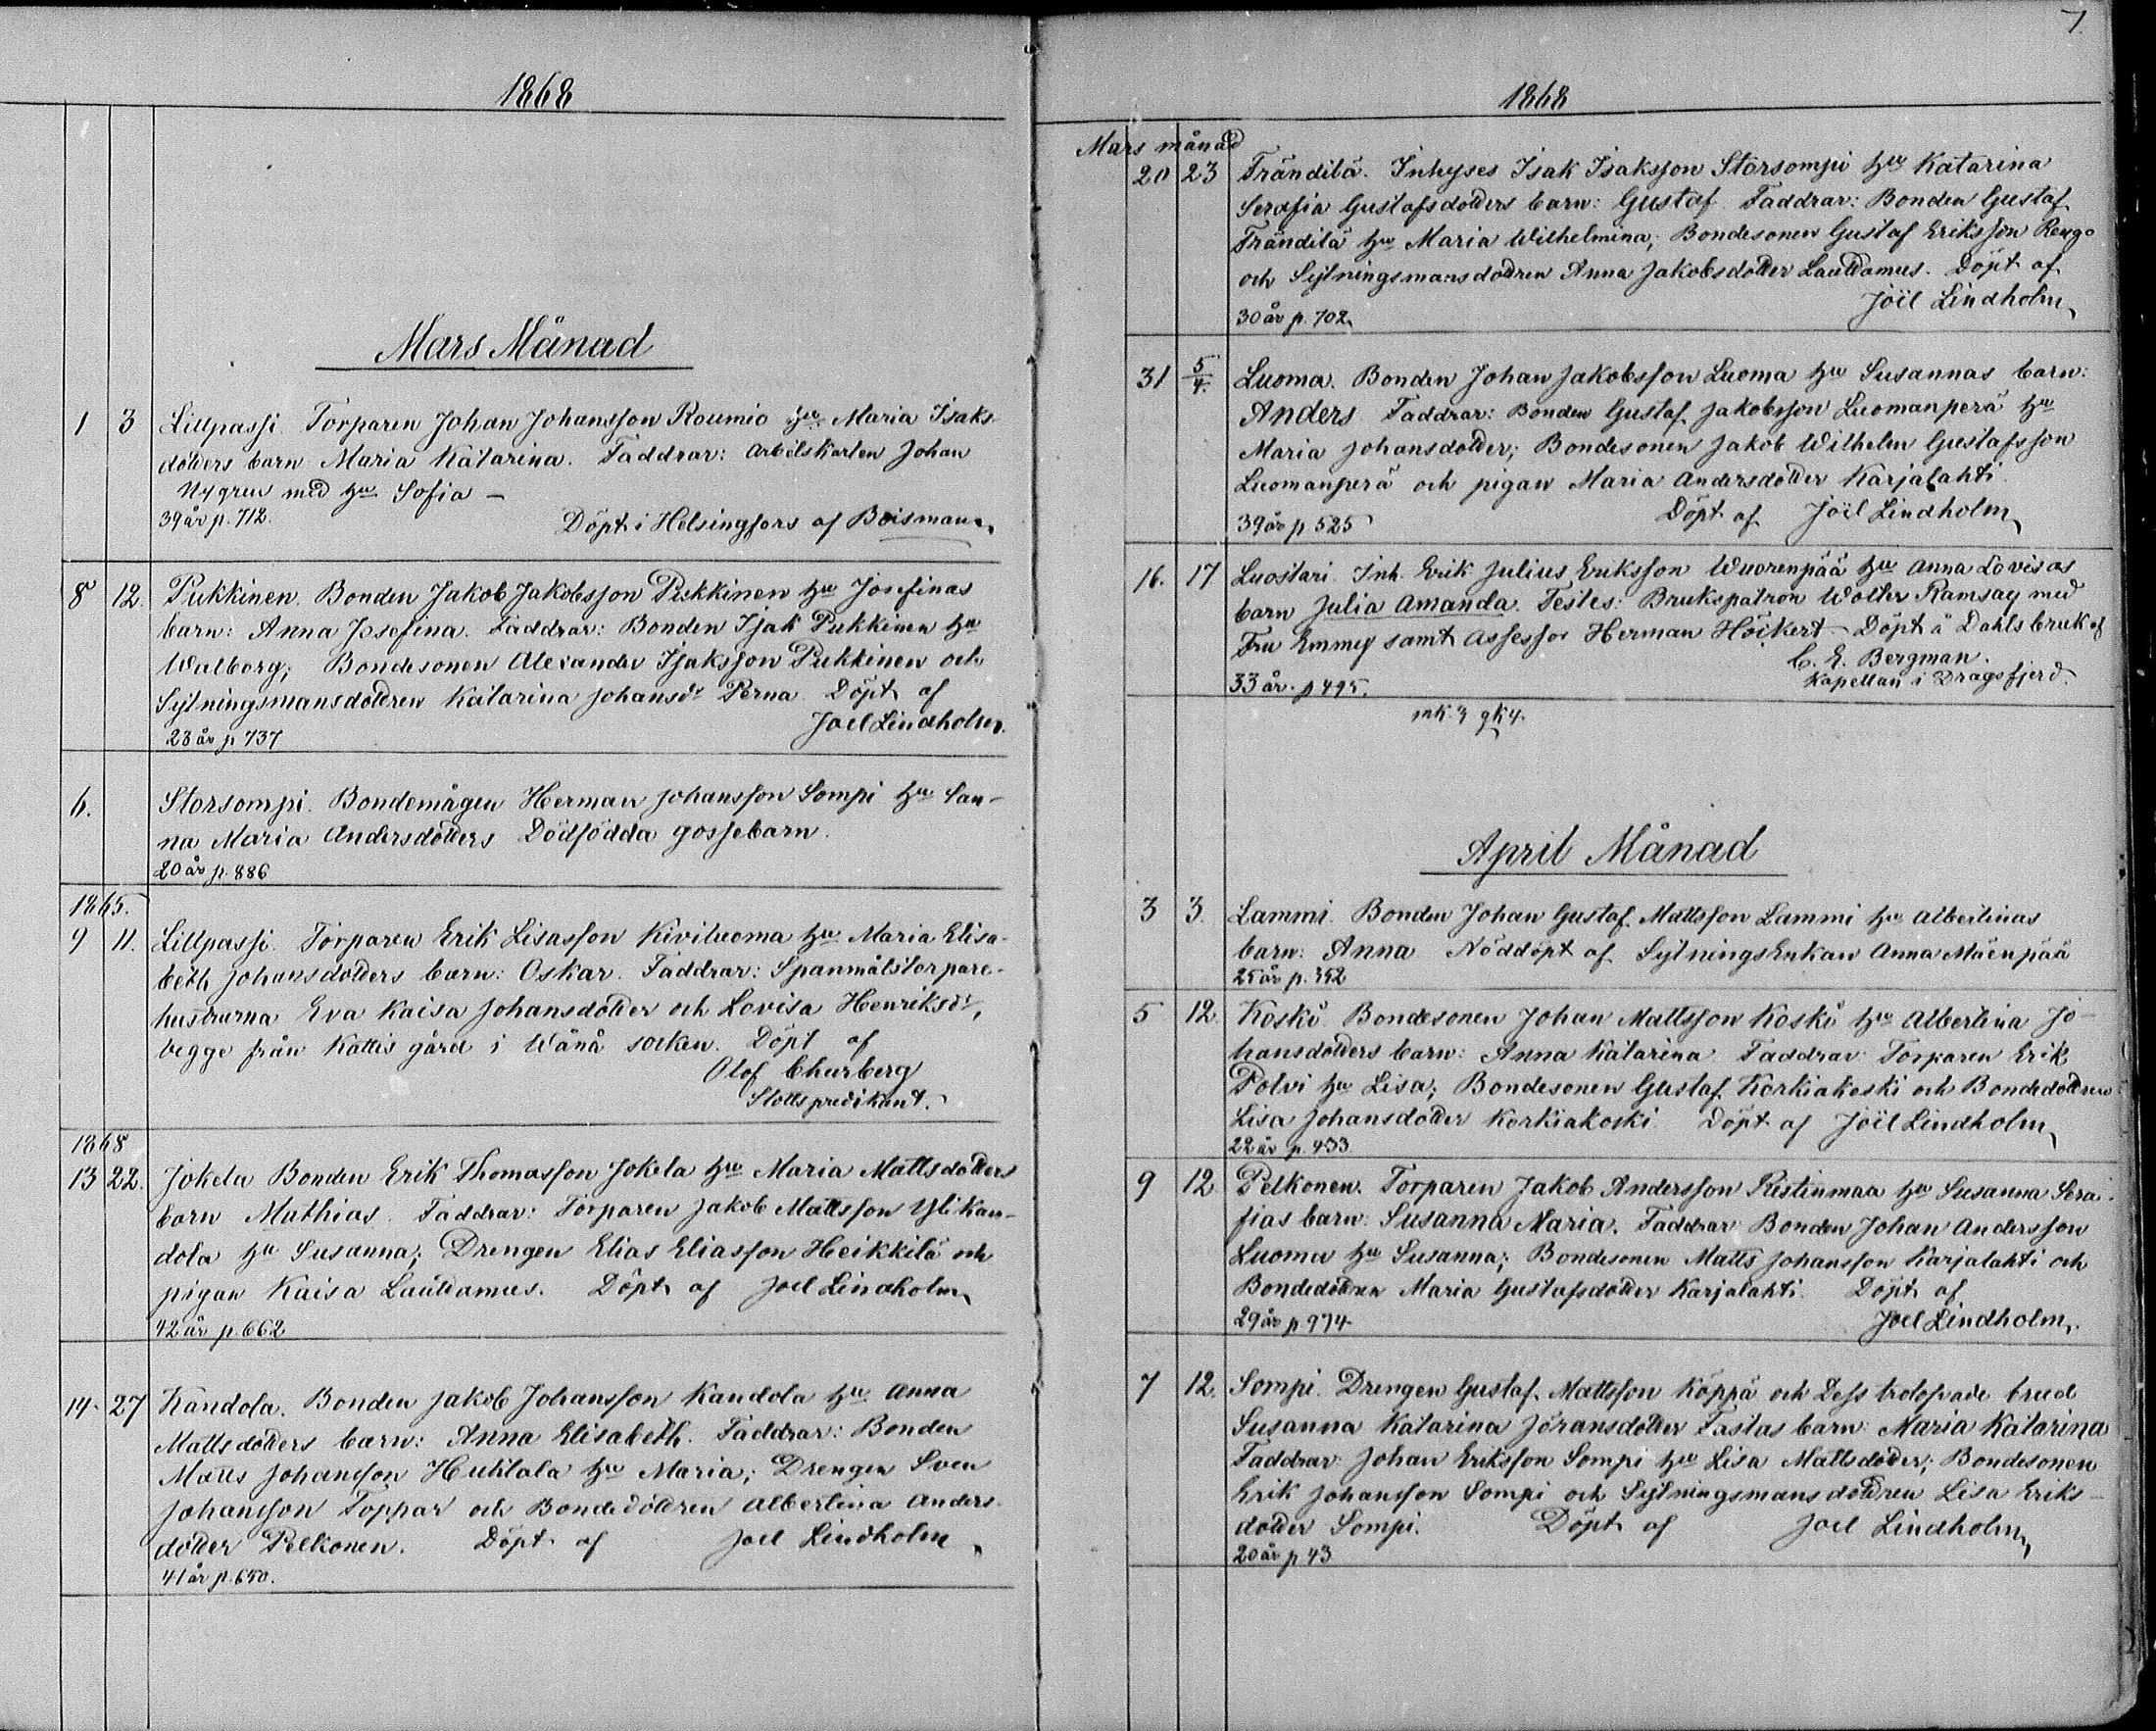 1868
Mars Månad
1 3 Lillpassi. Torparen Johan Johansson Roumio hu Maria Isaks-
dotters barn Maria Katarina. Faddrar: Arbetskarlen Johan
Nygren med hu Sofia –
39 år p. 712. Döpt i Helsingfors af Boisman.
8 12. Pukkinen. Bonden Jakob Jakobsson Pukkinen hu Josefinas
barn: Anna Josefina. Faddrar: Bonden Isak Pukkinen hu
Walborg; Bondesonen Alexander Isaksson Pukkinen och
Sytningsmansdottren Katarina Johansdr Perna. Döpt af
Joel Lindholm.
23 år p 737
6. Storsompi. Bondemågen Herman Johansson Sompi hu San-
na Maria Andersdotters Dödfödda gossebarn.
20 år p. 886
1865.
9 11. Lillpassi. Torparen Erik Lisasson Kiviluoma hu Maria Elisa-
beth Johansdotters barn: Oskar. Faddrar: Spanmålstorpare-
hustrurna Eva Kaisa Johansdotter och Lovisa Henriksdr,
begge från Kattis gård i Wånå socken. Döpt af
Olof Churberg
Slottspredikant.
1868
13 22. Jokela Bonden Erik Thomasson Jokela hu Maria Mattsdotters
barn Mathias. Faddrar: Torparen Jakob Mattsson Ylikan-
dola hu Susanna; Drengen Elias Eliasson Heikkilä och
pigan Kaisa Lauttamus. Döpt af Joel Lindholm
42 år p. 662
14. 27 Kandola. Bonden Jakob Johansson Kandola hu Anna
Mattsdotters barn: Anna Elisabeth. Faddrar: Bonden
Matts Johansson Huhtala hu Maria; Drengen Sven
Johansson Toppar och Bondedottren Albertina Anders-
dotter Pelkonen. Döpt af Joel Lindholm
41 år p. 650.
7.
1868
Mars månad
20 23 Tränditä. Inhyses Isak Isaksson Storsompi hu Katarina
Serafia Gustafsdotters barn: Gustaf. Faddrar: Bonden Gustaf
Tränditä hu Maria Wilhelmina; Bondesonen Gustaf Eriksson Rengo
och Sytningsmansdottren Anna Jakobsdotter Lauttamus. Döpt af
Joël Lindholm
30 år p. 702.
31 5/4. Luoma. Bonden Johan Jakobsson Luoma hu Susannas barn:
Anders Faddrar: Bonden Gustaf Jakobsson Luomanperä hu
Maria Johansdotter; Bondesonen Jakob Wilhelm Gustafsson
Luomanperä och pigan Maria Andersdotter Karjalahti.
39 år p 525 Döpt af Joël Lindholm
16. 17 Luostari. Inh. Erik Julius Eriksson Wuorenpää hu Anna Lovisas
barn Julia Amanda. Testes: Brukspatron Wolter Ramsay med
Fru Emmy samt Assessor Herman Höckert – Döpt å Dahlsbruk af
C. E. Bergman.
33 år. p 495. Kapellan i Dragsfjerd.
mk. 3 qk 4.
April Månad
3 3. Lammi. Bonden Johan Gustaf Mattsson Lammi hu Albertinas
barn: Anna Nöddöpt af SytningsEnkan Anna Mäenpää
25 år p. 352
5 12. Koski. Bondesonen Johan Mattsson Koski hu Albertina Jo-
hansdotters barn: Anna Katarina Faddrar: Torparen Erik
Polvi hu Lisa; Bondesonen Gustaf Korkiakoski och Bondedottren
Lisa Johansdotter Korkiakoski Döpt af Joël Lindholm
22 år p. 433
9 12 Pelkonen. Torparen Jakob Andersson Ristinmaa hu Susanna Sera-
fias barn: Susanna Maria. Faddrar Bonden Johan Andersson
Luoma hu Susanna; Bondesonen Matts Johansson Karjalahti och
Bondedottren Maria Gustafsdotter Karjalahti. Döpt af
29 år p 974 Joel Lindholm.
7 12. Sompi. Drengen Gustaf Mattsson Köppä och Dess trolofvade brud
Susanna Katarina Jöransdotter Fastas barn: Maria Katarina
Faddrar: Johan Eriksson Sompi hu Lisa Mattsdotter; Bondesonen
Erik Johansson Sompi och Sytningsmansdottren Lisa Eriks-
dotter Sompi. Döpt af Joel Lindholm
20 år p 43